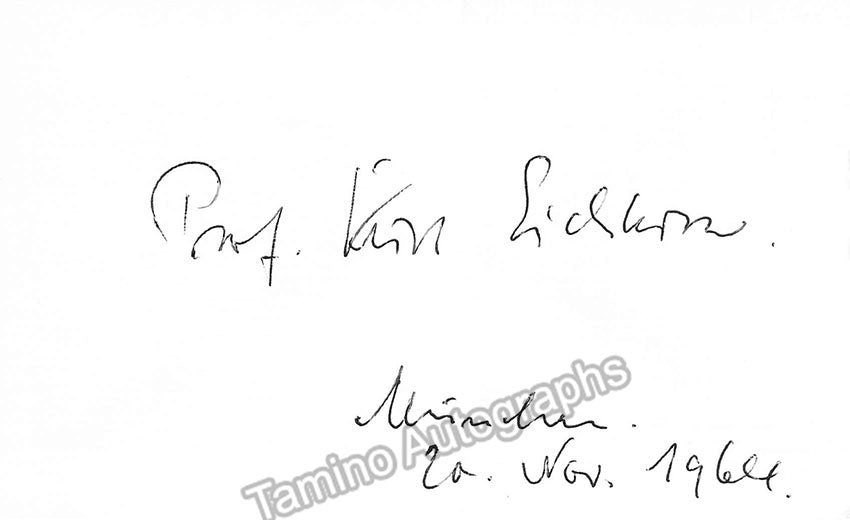 Prof. Kurt Eichhorn.
München.
20. Nov. 1964.
Tamino Autographs